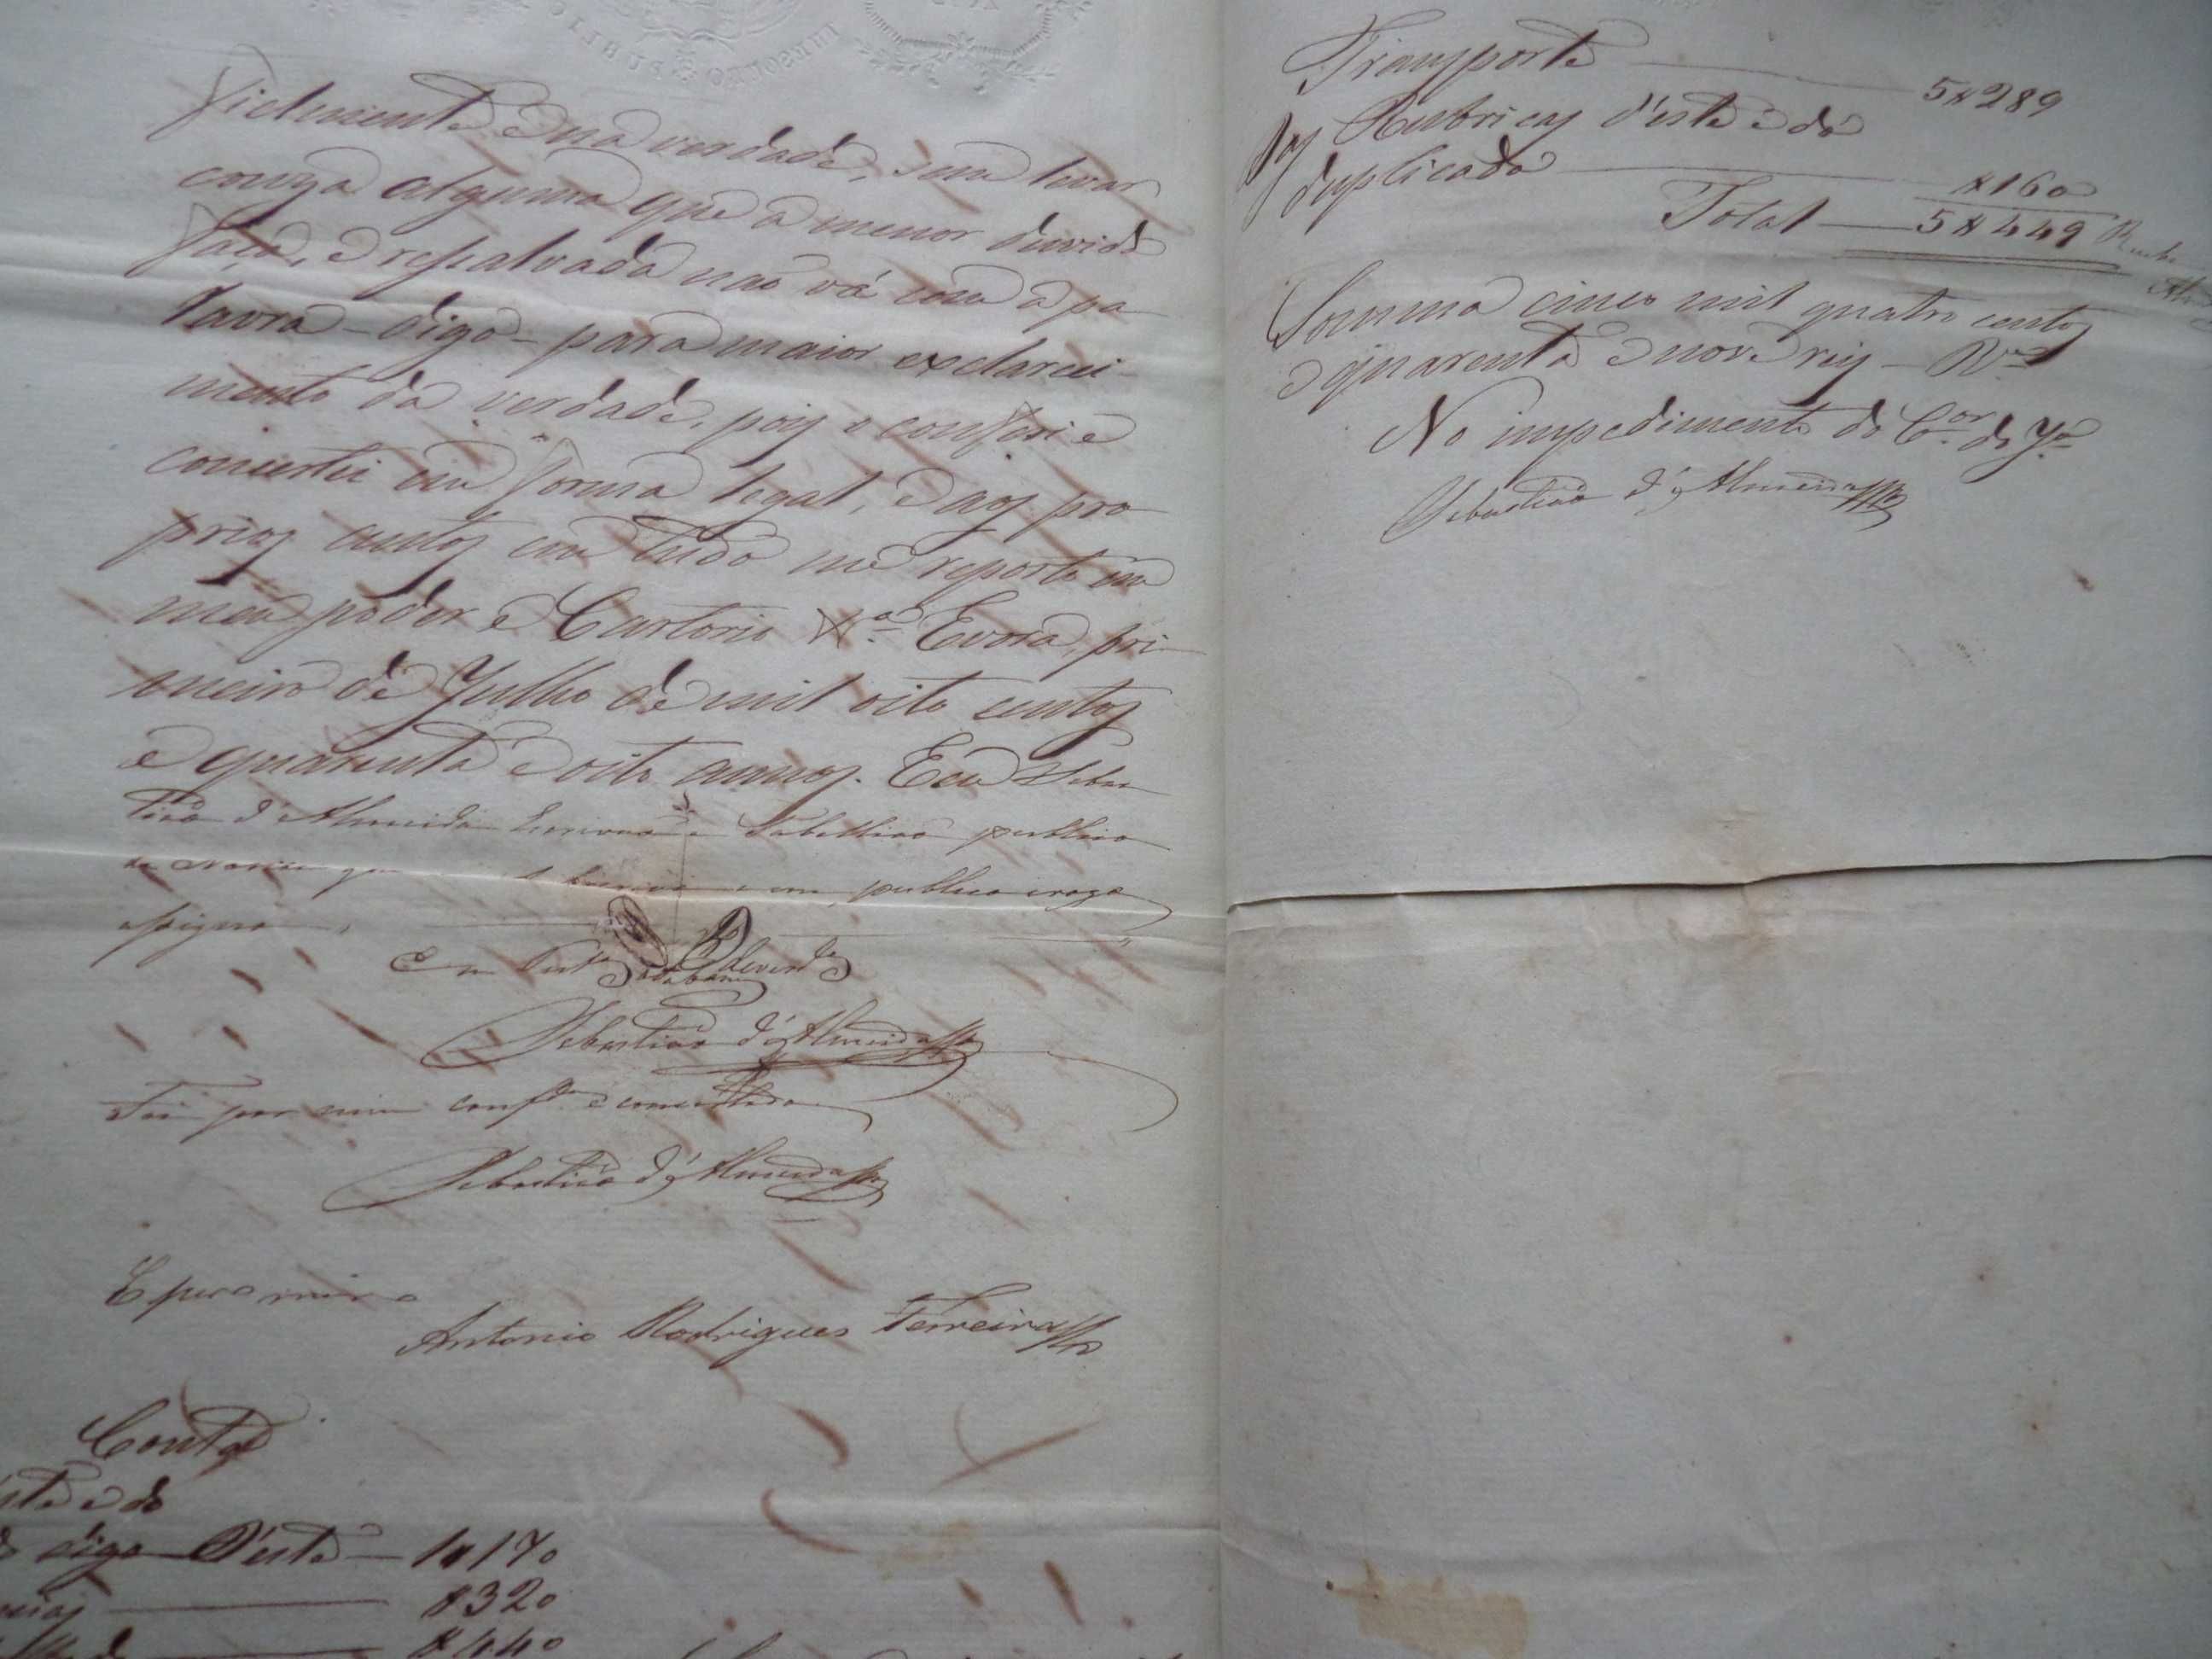 fielmente e na verdade, sem levar
couza alguma que a menor duvida
faça, e resalvada não vá com a pa
lavra - digo - para maior exclareci-
mento da verdade, pois o conferi e
concertei em forma legal, e aos pro
prios autos em tudo me reporto em
meu poder e Cartorio Va. Evora, pri-
meiro de Julho de mil oito centos
e quarenta e oito annos. E eu Sebas
tião d'Almeida Escrivão e Tabellião publico
que e em publico e razo
assigno
Em de verde
Sebastião d'Almeida
Foi por mim conf.do e concertado
Sebastião d'Almeida
E por mim
Antonio Rodrigues Ferreira
Conta
e do
digo D'este 1$170
$320
$440
Transporte 5$289
Das Rubricas d'este e do
duplicado $160
Total 5$449
Somma cinco mil quatro centos
e quarenta e nove reis
No impedimento do Cor. do Jo.
Sebastião d'Almeida